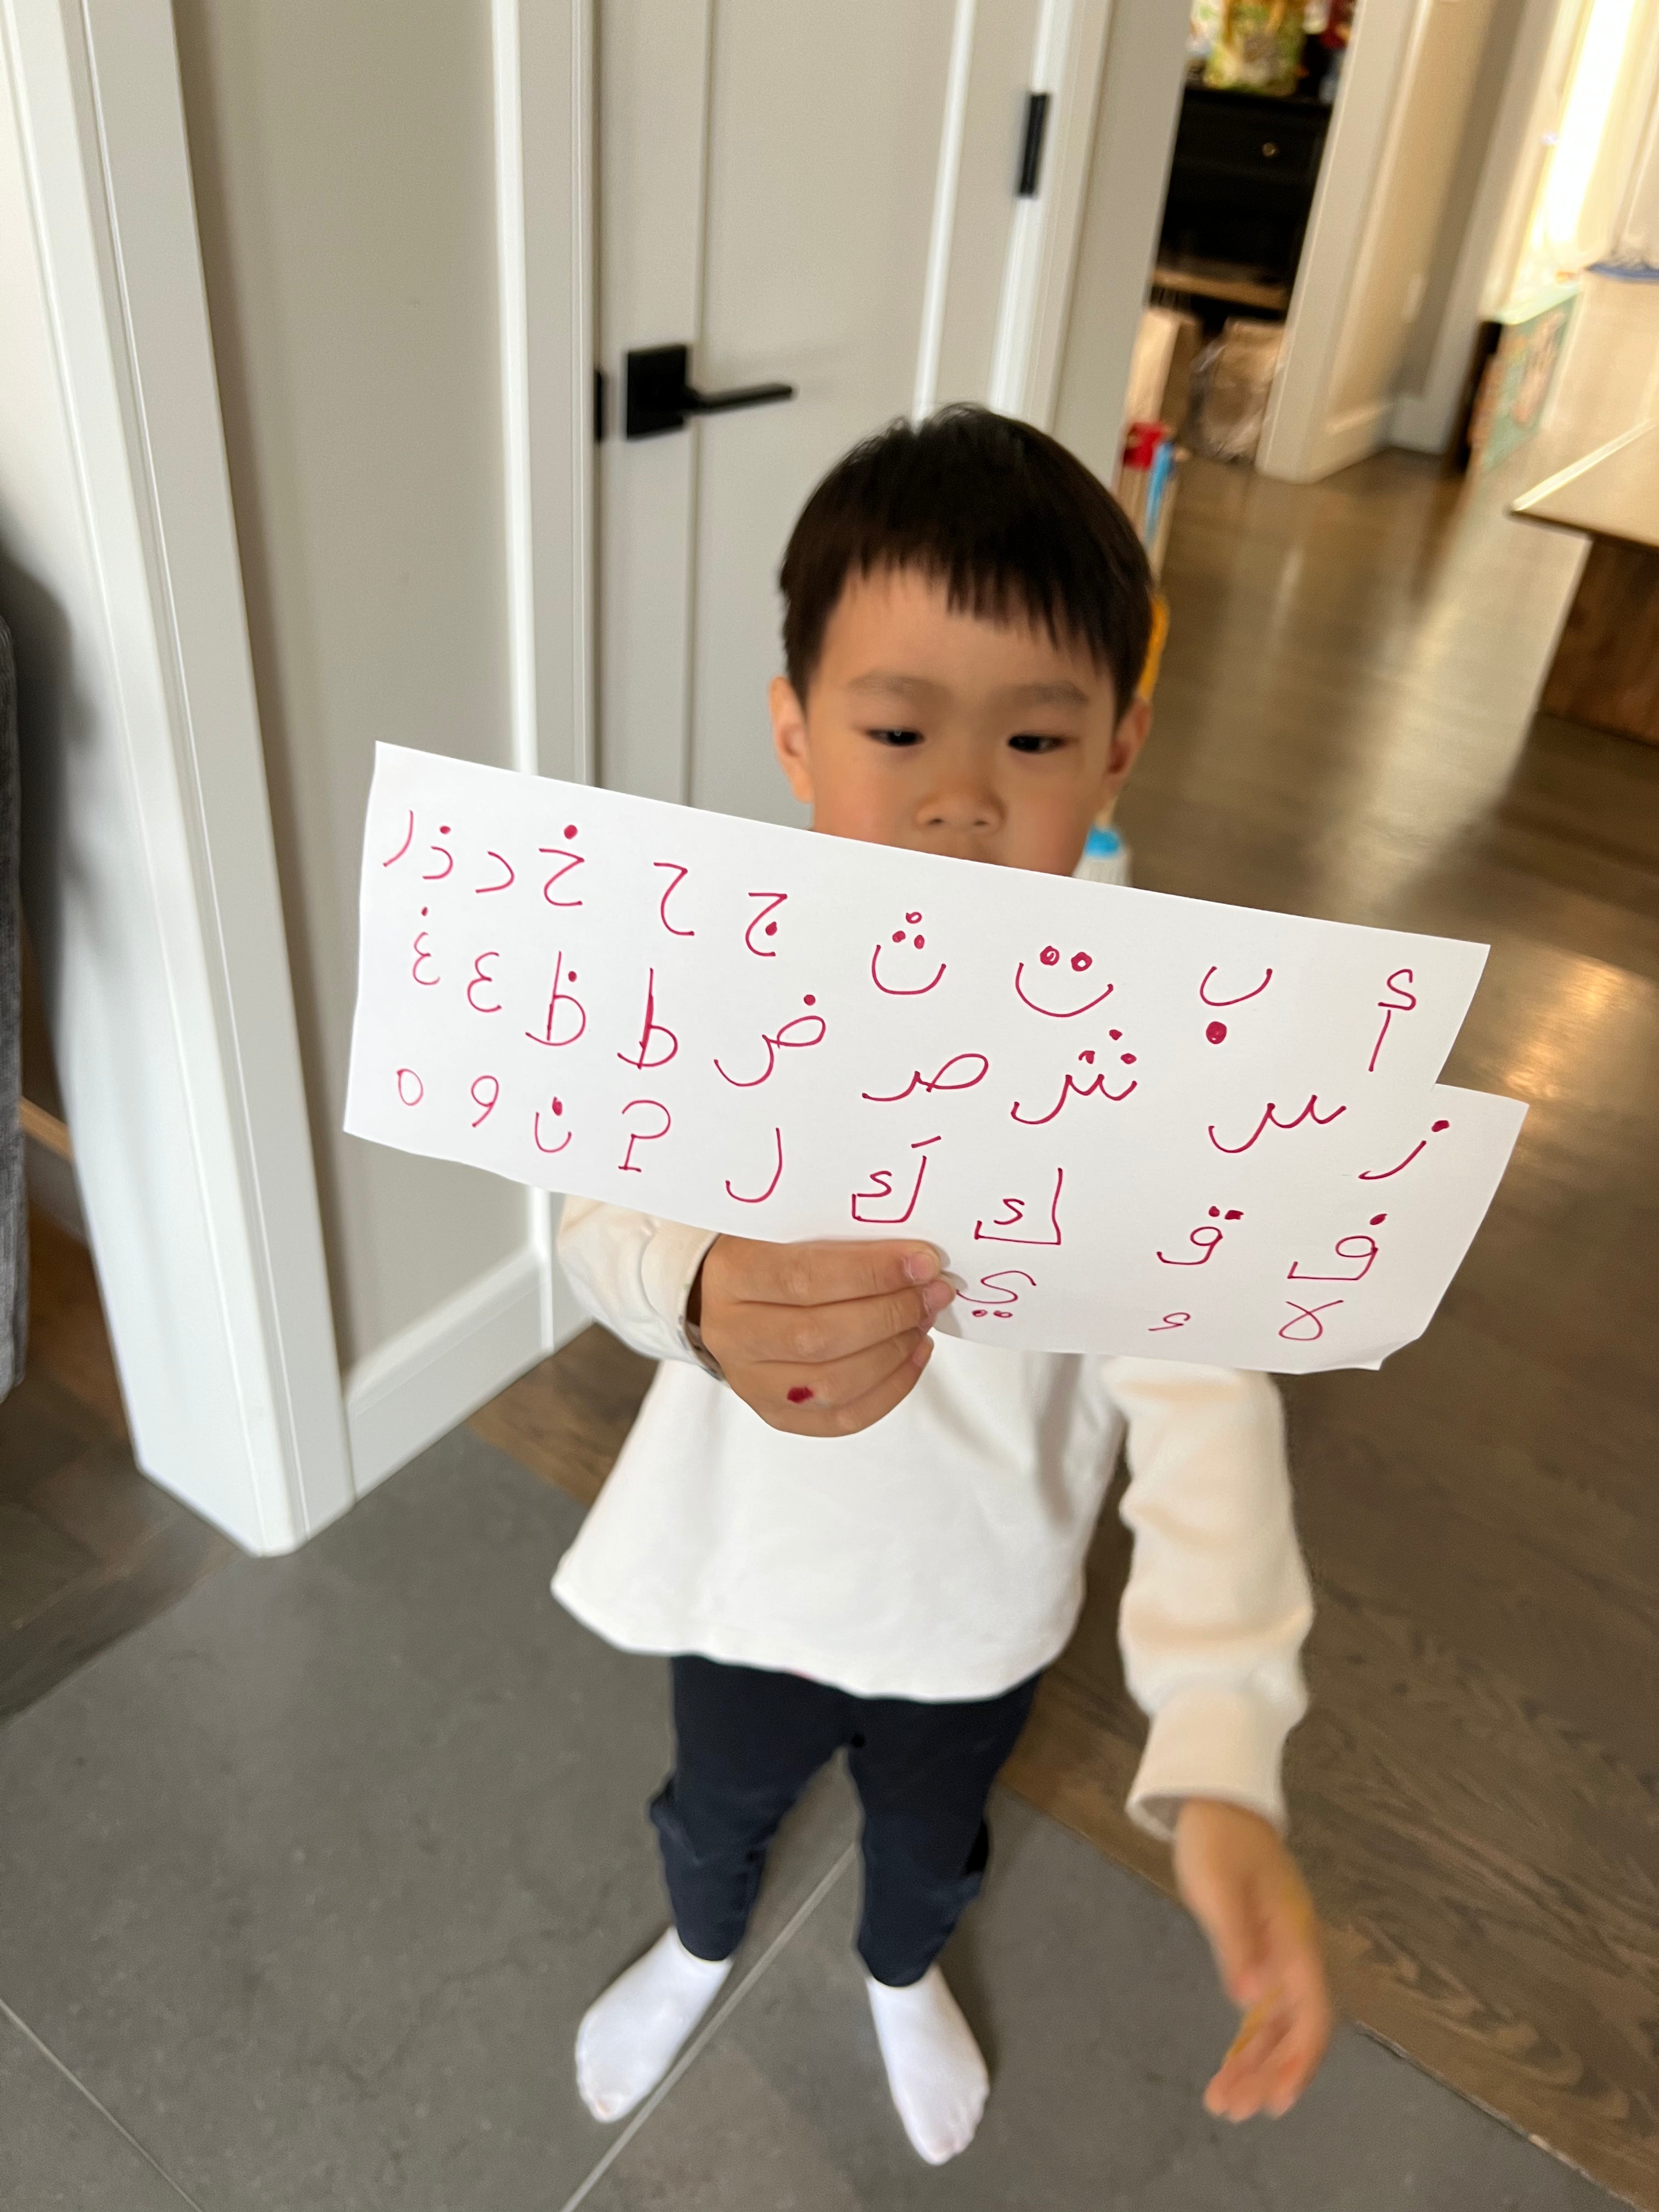 أ ب ت ث ج ح خ د ذ ر
ز س ش ص ض ط ظ ع غ
ف ق ك كَ ل م ن و ه
لا ء ي